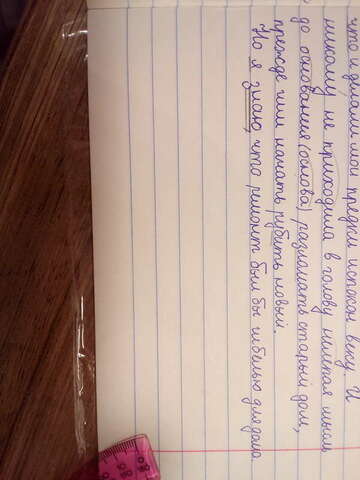 что и думали мои предки испокон веку. И
никому не приходила в голову нелепая мысль
до основания (основа) разломать старый дом,
прежде чем начать рубить новый.
Но я знаю, что ремонт был бы гибелью для дома